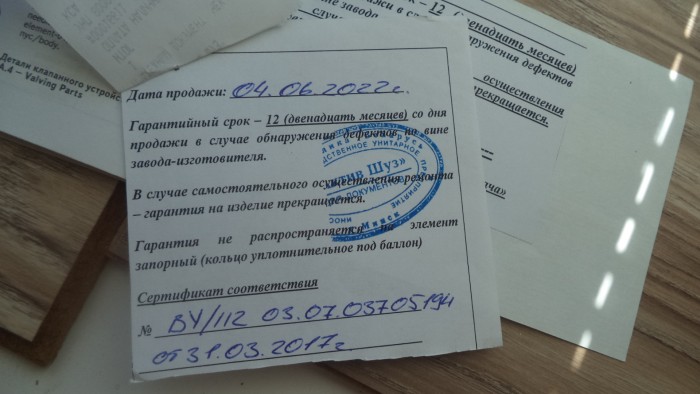 element-
пус/body.
Детали клапанного устройс
A.4 – Valving Parts
12 (двенадцать месяцев)
осуществления
прекращается.
Дата продажи: 04.06.2022г.
Гарантийный срок – 12 (двенадцать месяцев) со дня
продажи в случае обнаружения дефектов по вине
завода-изготовителя.
В случае самостоятельного осуществления ремонта
– гарантия на изделие прекращается.
Гарантия не распространяется на элемент
запорный (кольцо уплотнительное под баллон)
Сертификат соответствия
№ BY/112 03.07.03705194
от 31.03.2017г
тив Шуз»
УНИТАРНОЕ
ПРИЯТИЕ
ДОКУМЕНТО
Минск